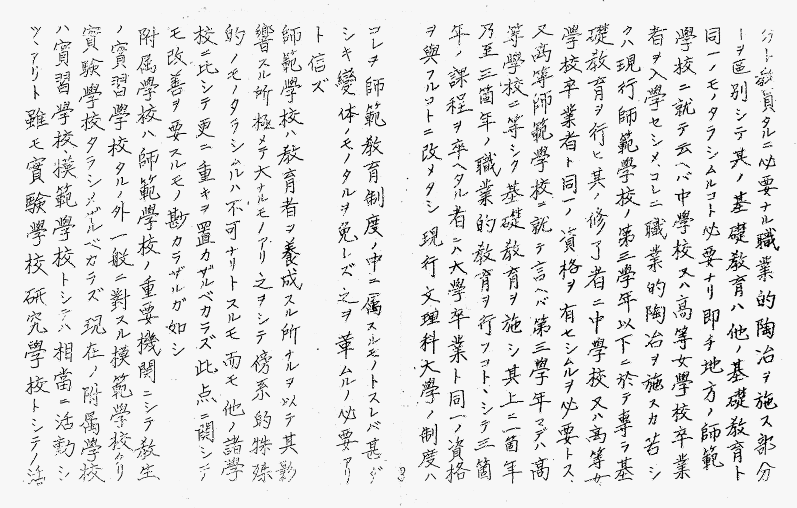 分ト教員タルニ必要ナル職業的陶冶ヲ施ス部分
トヲ區別シテ其ノ基礎教育ハ他ノ基礎教育ト
同一ノモノタラシムルコト必要ナリ即チ地方ノ師範
學校ニ就テ云ヘバ中學校又ハ高等女學校卒業
者ヲ入學セシメ、コレニ職業的陶冶ヲ施スカ若シ
クハ現行師範學校ノ第三學年以下ニ於テ專ラ基
礎教育ヲ行ヒ其ノ修了者ニ中學校又ハ高等女
學校卒業者ト同一ノ資格ヲ有セシムルヲ必要トス、
又高等師範學校ニ就テ言ヘバ第三學年マデハ高
等學校ニ等シク基礎教育ヲ施シ其上ニ一箇年
乃至三箇年ノ職業的教育ヲ行フコトヽシテ三箇
年ノ課程ヲ卒ヘタル者ニハ大學卒業ト同一ノ資格
ヲ與フルコトニ改メタシ現行文理科大學ノ制度ハ
3
コレヲ師範教育制度ノ中ニ屬スルモノトスレバ甚ダ
シキ變体ノモノタルヲ免レズ之ヲ革ムルノ必要アリ
ト信ズ
師範學校ハ教育者ヲ養成スル所ナルヲ以テ其影
響スル所極メテ大ナルモノアリ之ヲシテ傍系的特殊
的ノモノタラシムルハ不可ナリトスルモ而モ他ノ諸學
校ニ比シテ更ニ重キヲ置カザルベカラズ此点ニ関シテ
モ改善ヲ要スルモノ尠カラザルガ如シ
附属學校ハ師範學校ノ重要機関ニシテ教生
ノ實習學校タルノ外一般ニ對スル模範學校タリ
實驗學校タラシメザルベカラズ現在ノ附属學校
ハ實習學校模範學校トシテハ相當ニ活動シ
ツヽアリト雖モ實驗學校研究學校トシテノ活